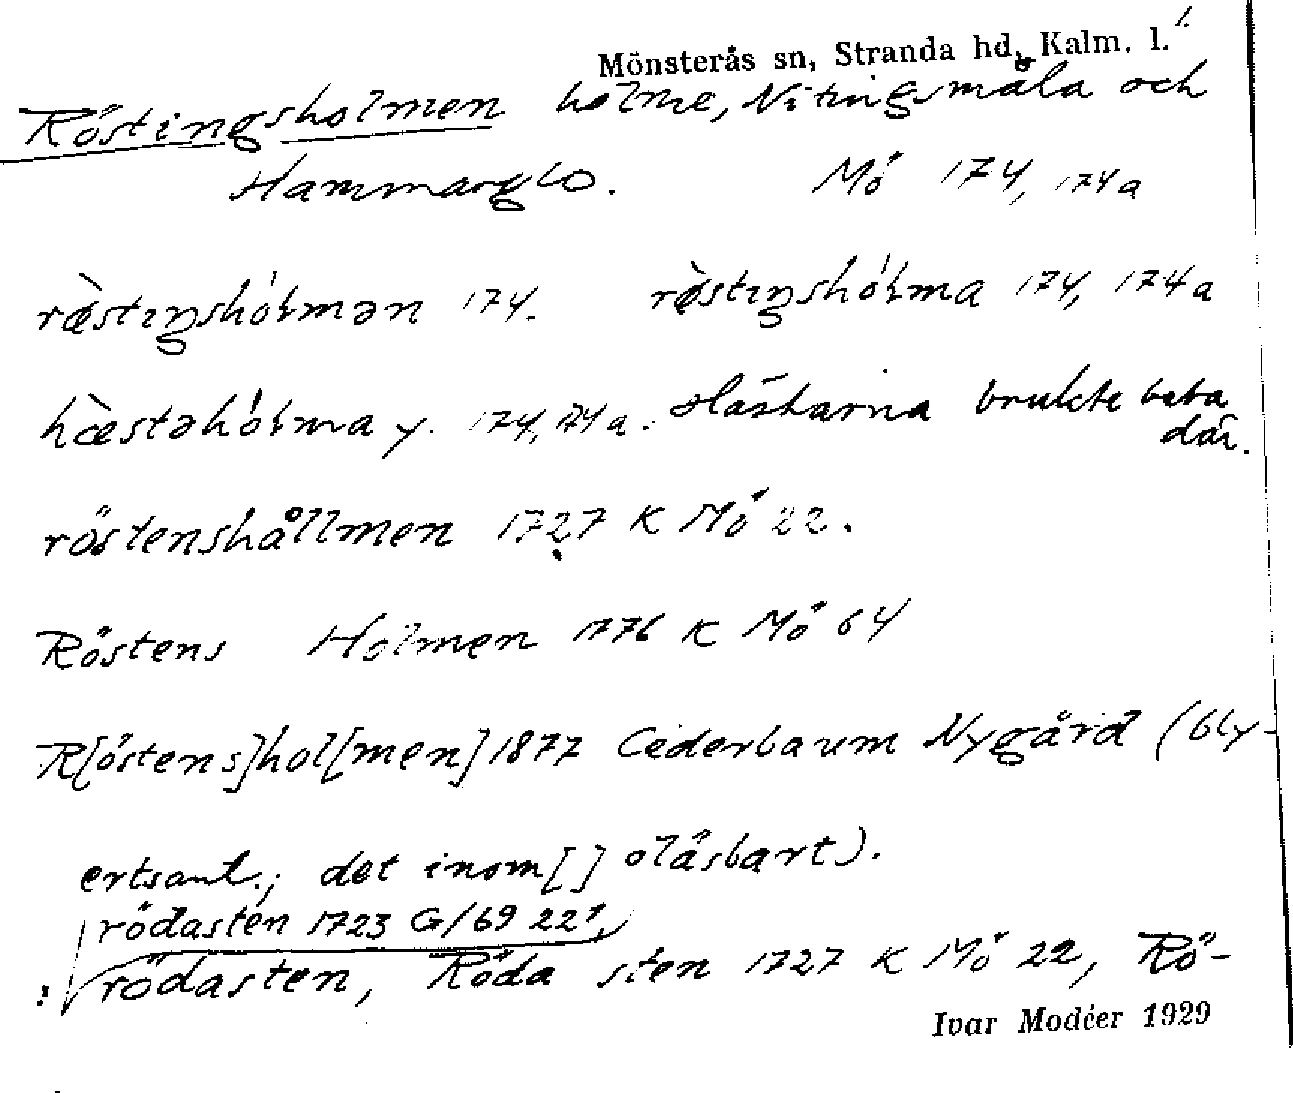 Mönsterås sn, Stranda hd, Kalm. l. 1.
Röstingsholmen holme, Nitingsmåla och
Hammarglo. Mö 174, 174a
ræ̀stıŋshólmən 174. rø̀stıŋshólma 174, 174a
hæ̀stəhólma y. 174, 174a. Hästarna brukte beta
där.
röstenshållmen 1727 K Mö 22.
Röstens Holmen 1776 K Mö 64
R[östens]hol[men] 1877 Cederbaum Nygård (bly-
ertsant.; det inom [] oläsbart).
rödasten 1723 G/69 22¹,
: rödasten, Röda sten 1727 K Mö 22, Rö-
Ivar Modéer 1929